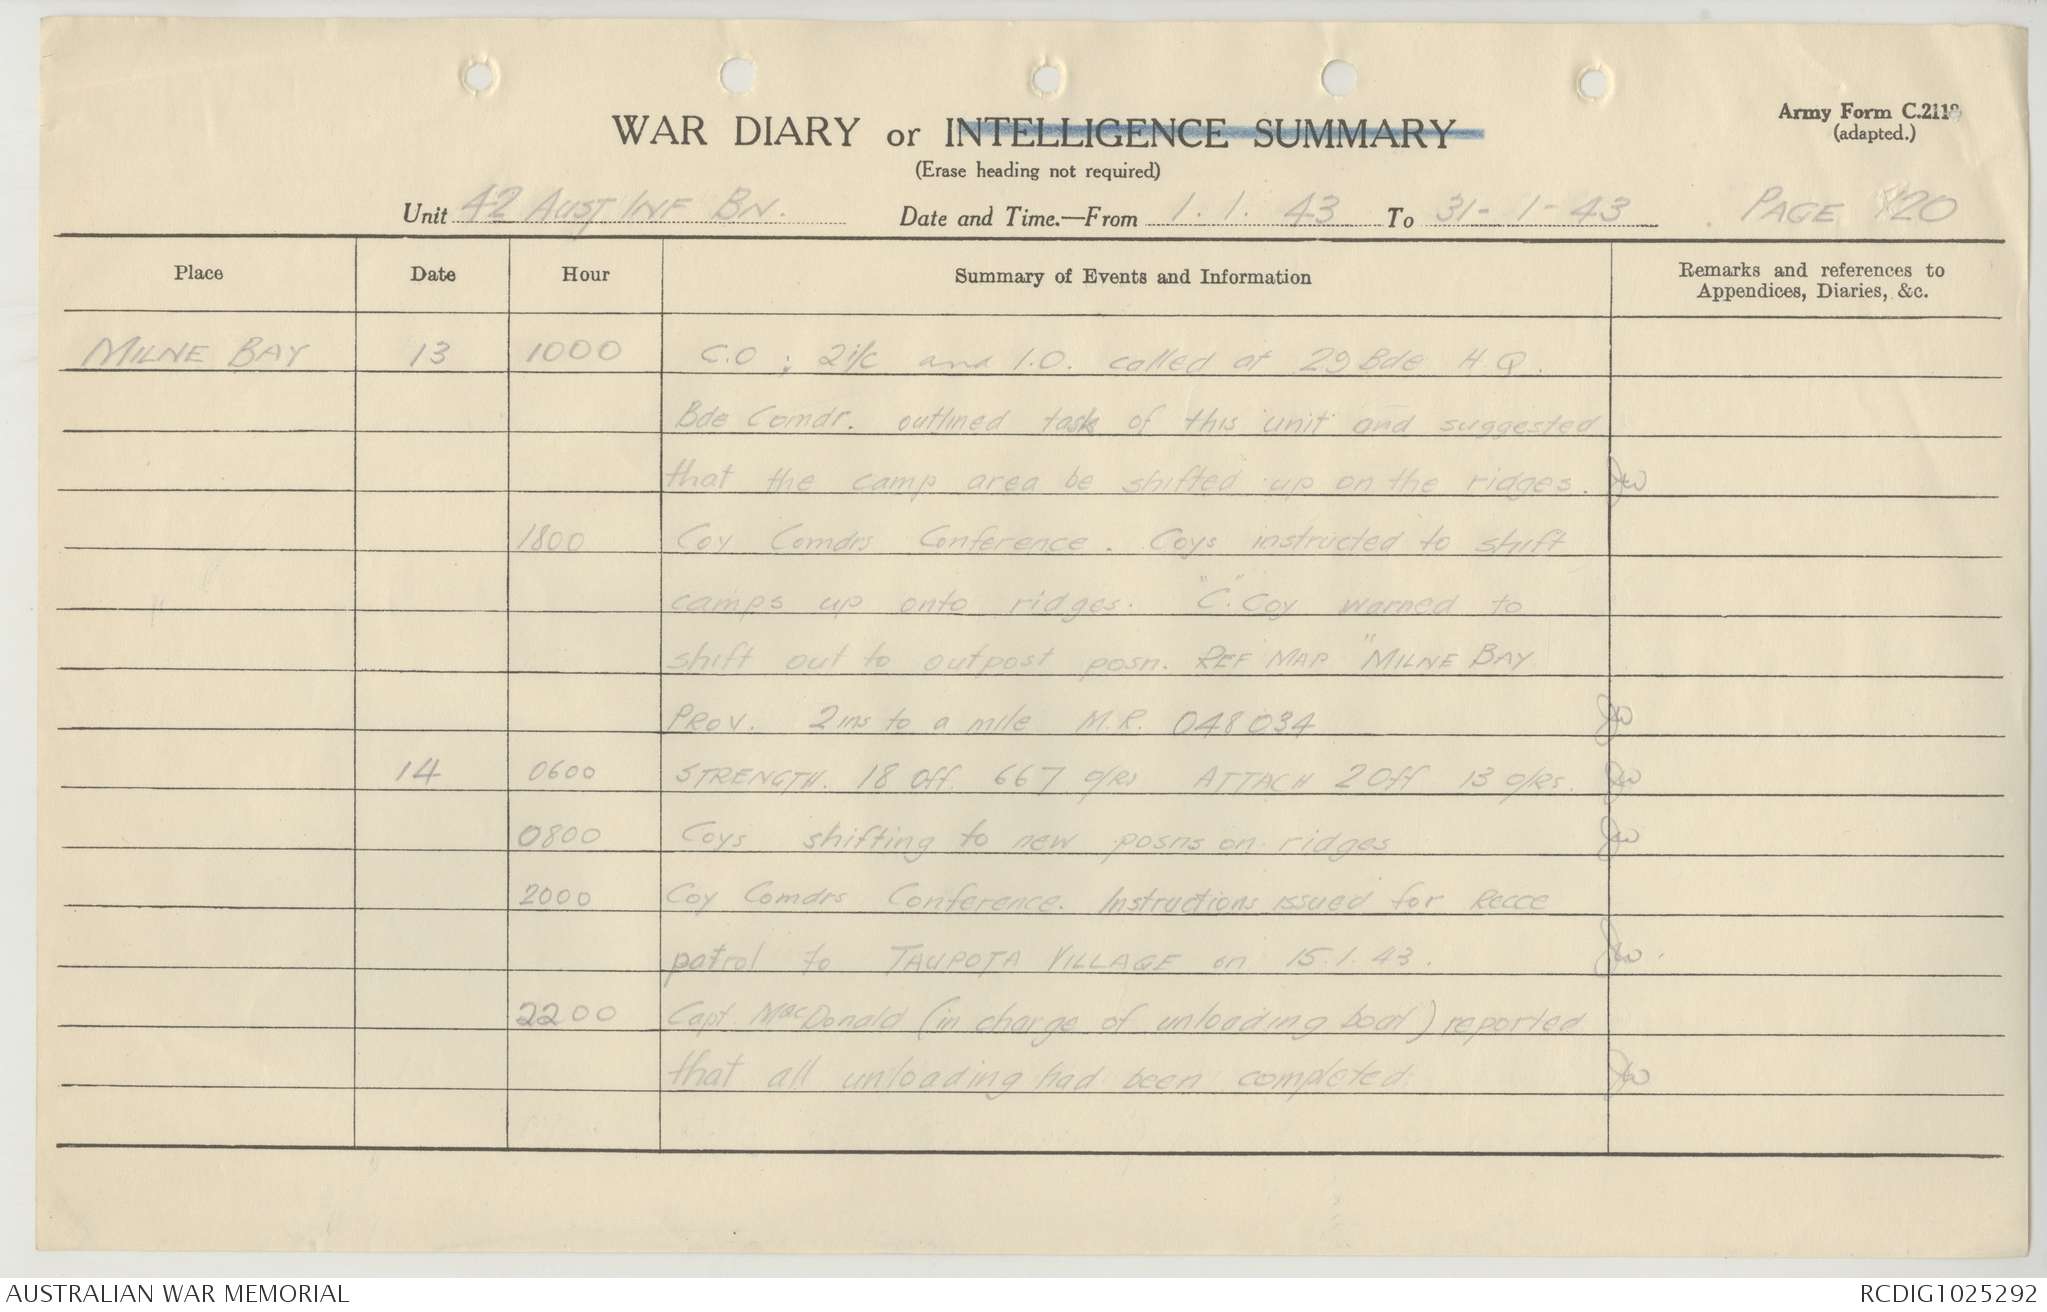 Army Form C.2118
(adapted.)
WAR DIARY or INTELLIGENCE SUMMARY
(Erase heading not required)
Unit 42 AUST INF BN. Date and Time.—From 1. 1. 43 To 31-1-43 PAGE 20
Place Date Hour Summary of Events and Information Remarks and references to Appendices, Diaries, &c.
MILNE BAY 13 1000 C.O ; 2i/c and I.O. called at 29 Bde H.Q.
Bde Comdr. outlined task of this unit and suggested
that the camp area be shifted up on the ridges.
1800 Coy Comdrs Conference. Coys instructed to shift
camps up onto ridges. "C" Coy warned to
shift out to outpost posn. REF MAP "MILNE BAY
PROV. 2 ins to a mile M.R. 048034
14 0600 STRENGTH. 18 Off. 667 O/RS ATTACH 2 Off 13 O/Rs.
0800 Coys shifting to new posns on ridges
2000 Coy Comdrs Conference. Instructions issued for Recce
patrol to TAUPOTA VILLAGE on 15.1.43.
2200 Capt. MacDonald (in charge of unloading boat) reported
that all unloading had been completed
AUSTRALIAN WAR MEMORIAL RCDIG1025292